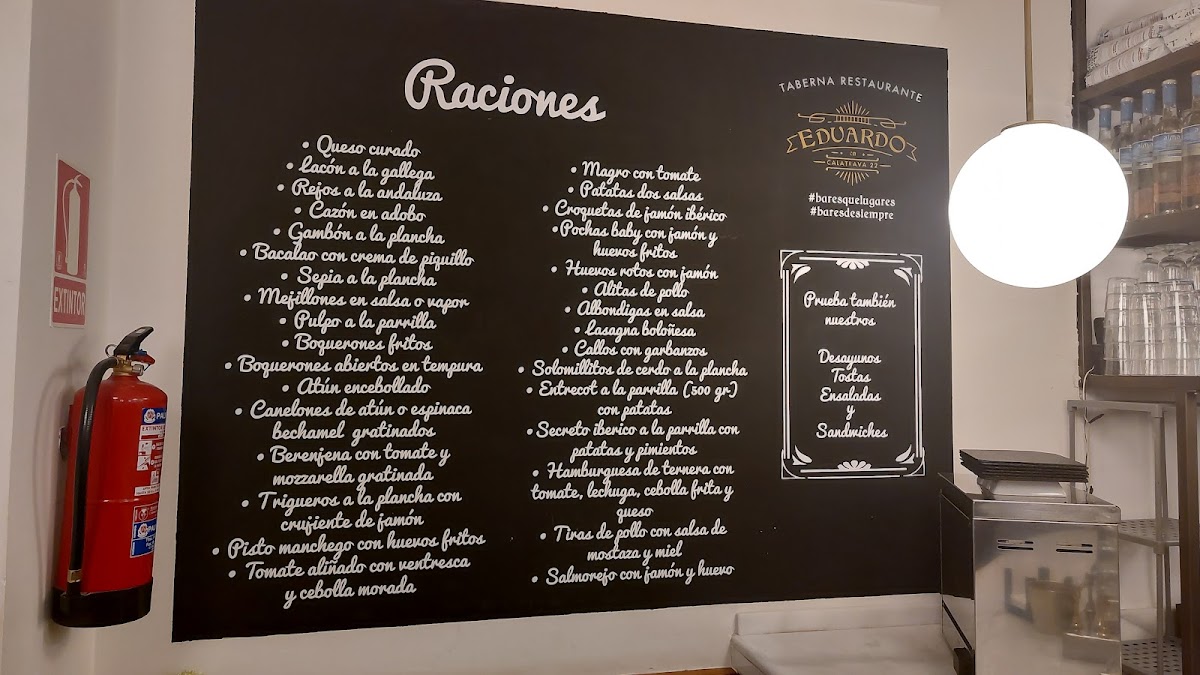 Raciones
• Queso curado
• Lacón a la gallega
• Rejos a la andaluza
• Cazón en adobo
• Gambón a la plancha
• Bacalao con crema de piquillo
• Sepia a la plancha
• Mejillones en salsa o vapor
• Pulpo a la parrilla
• Boquerones fritos
• Boquerones abiertos en tempura
• Atún encebollado
• Canelones de atún o espinaca
bechamel gratinados
• Berenjena con tomate y
mozzarella gratinada
• Trigueros a la plancha con
crujiente de jamón
• Pisto manchego con huevos fritos
• Tomate aliñado con ventresca
y cebolla morada
• Magro con tomate
• Patatas dos salsas
• Croquetas de jamón ibérico
• Pochas baby con jamón y
huevos fritos
• Huevos rotos con jamón
• Alitas de pollo
• Albondigas en salsa
• Lasagna boloñesa
• Callos con garbanzos
• Solomillitos de cerdo a la plancha
• Entrecot a la parrilla (500 gr)
con patatas
• Secreto iberico a la parrilla con
patatas y pimientos
• Hamburguesa de ternera con
tomate, lechuga, cebolla frita y
queso
• Tiras de pollo con salsa de
mostaza y miel
• Salmorejo con jamón y huevo
TABERNA RESTAURANTE
EDUARDO
CALATRAVA 22
#baresquelugares
#baresdesiempre
Prueba también
nuestros
Desayunos
Tostas
Ensaladas
y
Sandwiches
EXTINTOR